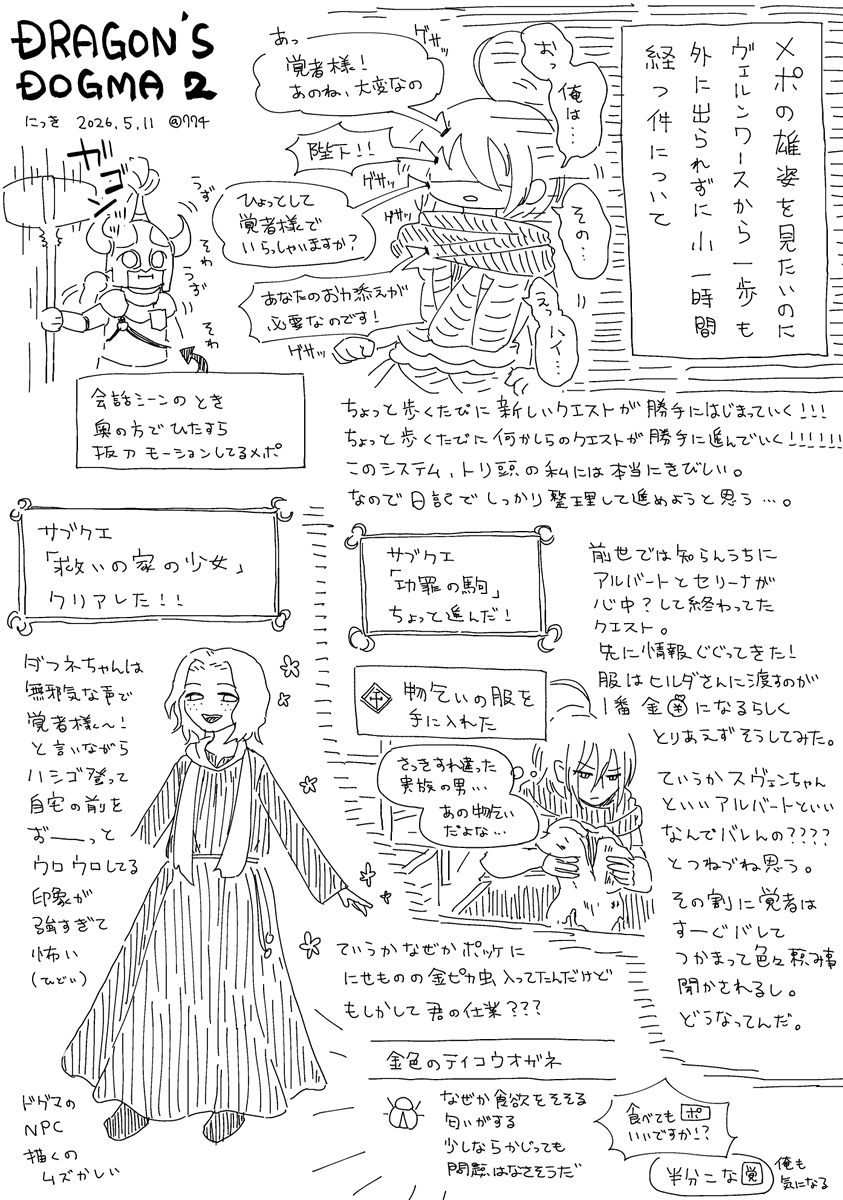 DRAGON'S
DOGMA 2
にっき 2026.5.11 @774
メポの雄姿を見たいのに
ヴェルンワースから一歩も
外に出られずに小一時間
経つ件について
おっ
俺は…
その…
えっハイ…
あっ
覚者様!
あのね、大変なの
陛下!!
ひょっとして
覚者様で
いらっしゃいますか?
あなたのお力添えが
必要なのです!
ゲサッ
ゲサッ
ゲサッ
ゲサッ
ゲサッ
ガコン
うず
そわ
うず
そわ
会話シーンのとき
奥の方でひたすら
抜刀モーションしてるメポ
ちょっと歩くたびに新しいクエストが勝手にはじまっていく!!!
ちょっと歩くたびに何かしらのクエストが勝手に進んでいく!!!!!!
このシステム、トリ頭の私には本当にきびしい。
なので日記でしっかり整理して進めようと思う…。
サブクエ
「救いの家の少女」
クリアした!!
ダフネちゃんは
無邪気な声で
覚者様〜!
と言いながら
ハシゴ登って
自宅の前を
おーーっと
ウロウロしてる
印象が
強すぎて
怖い
(ひどい)
ドグマの
NPC
描くの
ムズかしい
サブクエ
「功罪の駒」
ちょっと進んだ!
前世では知らんうちに
アルバートとセリーナが
心中?して終わってた
クエスト。
先に情報ぐぐってきた!
服はヒルダさんに渡すのが
1番金になるらしく
とりあえずそうしてみた。
物乞いの服を
手に入れた
さっきすれ違った
貴族の男…
あの物乞い
だよな…
ていうかスヴェンちゃん
といいアルバートといい
なんでバレんの????
とつねづね思う。
その割に覚者は
すーぐバレて
つかまって色々頼み事
聞かされるし。
どうなってんだ。
ていうかなぜかポッケに
にせものの金ピカ虫入ってたんだけど
もしかして君の仕業???
金色のテイコウオガネ
なぜか食欲をそそる
匂いがする
少しならかじっても
問題はなさそうだ
食べても ポ
いいですか!?
半分こな 覚
俺も
気になる